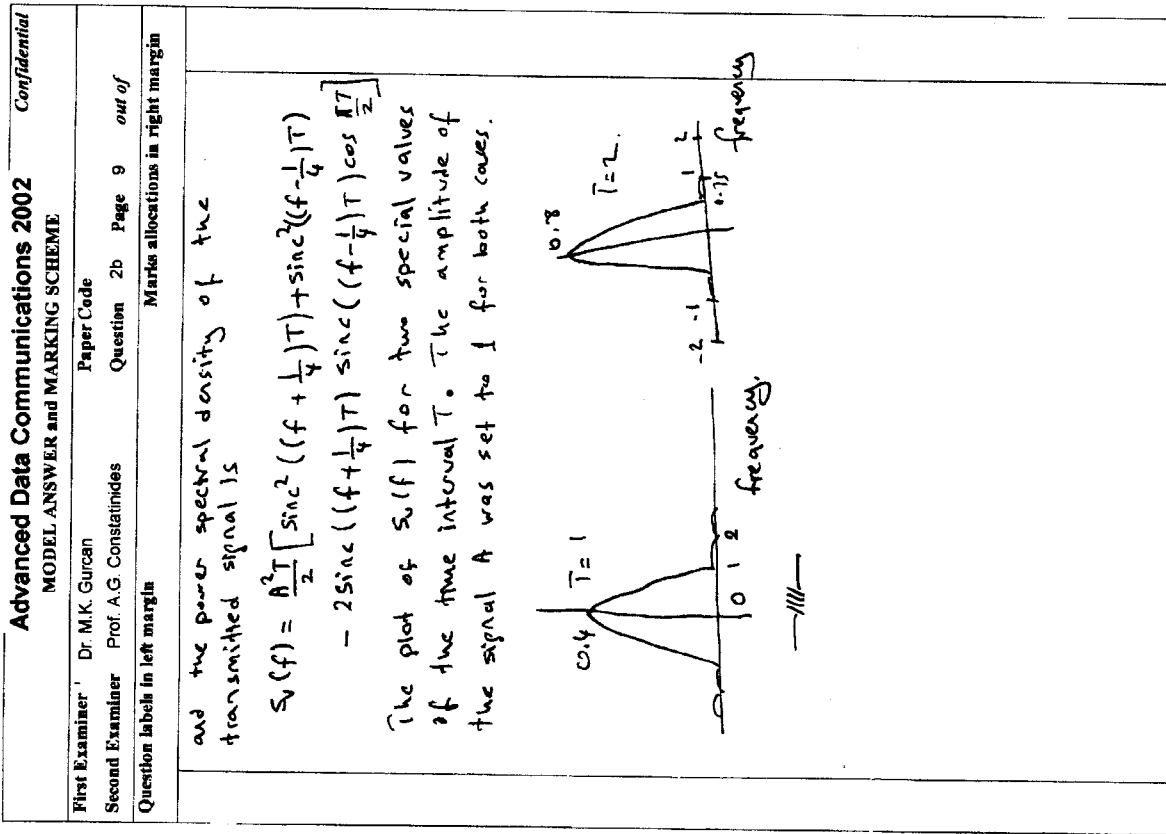 Advanced Data Communications 2002 Confidential
MODEL ANSWER and MARKING SCHEME
First Examiner Dr. M.K. Gurcan Paper Code
Second Examiner Prof. A.G. Constatinides Question 2b Page 9 out of
Question labels in left margin Marks allocations in right margin
and the power spectral density of the
transmitted signal is
Sv(f) = A²T/2 [ sinc² ((f + 1/4)T) + sinc²((f - 1/4)T)
- 2 sinc ((f + 1/4)T) sinc ((f - 1/4)T) cos πT/2 ]
The plot of Sv(f) for two special values
of the time interval T. The amplitude of
the signal A was set to 1 for both cases.
0.4
T=1
0 1 2
frequency.
0.8
T=2.
-2 -1 0.75 1 2
frequency